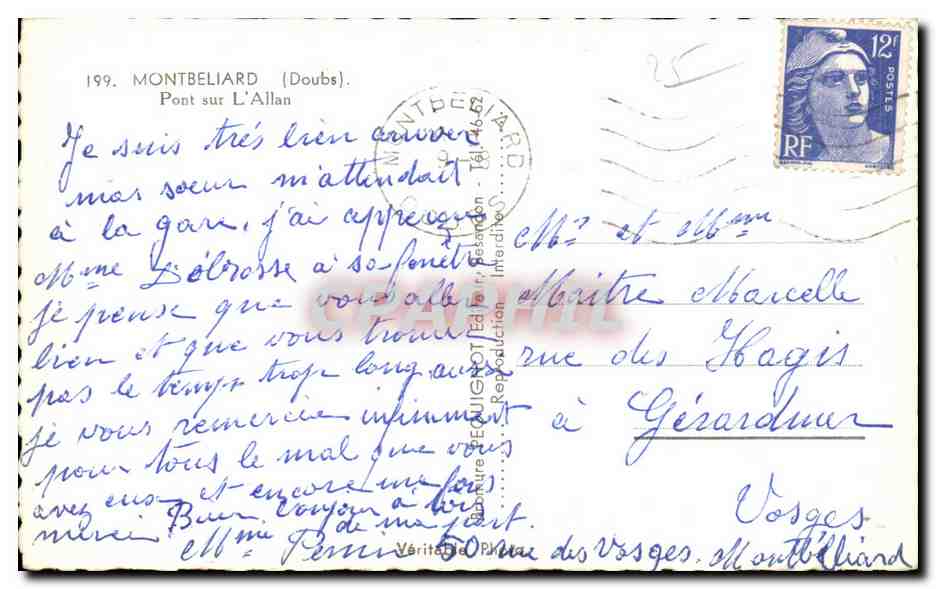 199. MONTBELIARD (Doubs).
Pont sur L'Allan
Je suis très bien arriver
mas soeur m'attendait
à la gare, j'ai apperçu
Mme Débrosse à sa fenêtre
je pense que vous allez
bien et que vous trouvez
pas le temps trop long, aussi
je vous remercie infiniment
pour tous le mal que vous
avez eus et encore une fois
merci Bien bonjour à tous
de ma part.
Mme 50 rue des Vosges. Montbéliard
Mr et Mme
Maître Marcelle
rue des Hagis
à Gérardmer
Vosges
25
12F
POSTES
RF
MONTBELIARD
DOUBS
Bromure PEQUIGNOT Editeur, Besançon - Tél. 46-62
Reproduction Interdite
Véritable Photo
CPAPHIL